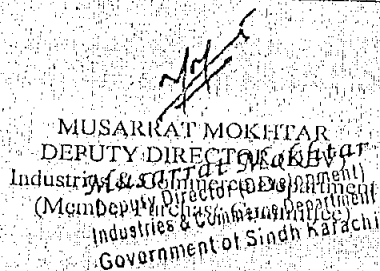 MUSARRAT MOKHTAR
DEPUTY DIRECTOR
Industries & Commerce Department
(Member Purchase Committee)
Musarrat Mokhtar
Deputy Director (Development)
Industries & Commerce Department
Government of Sindh Karachi